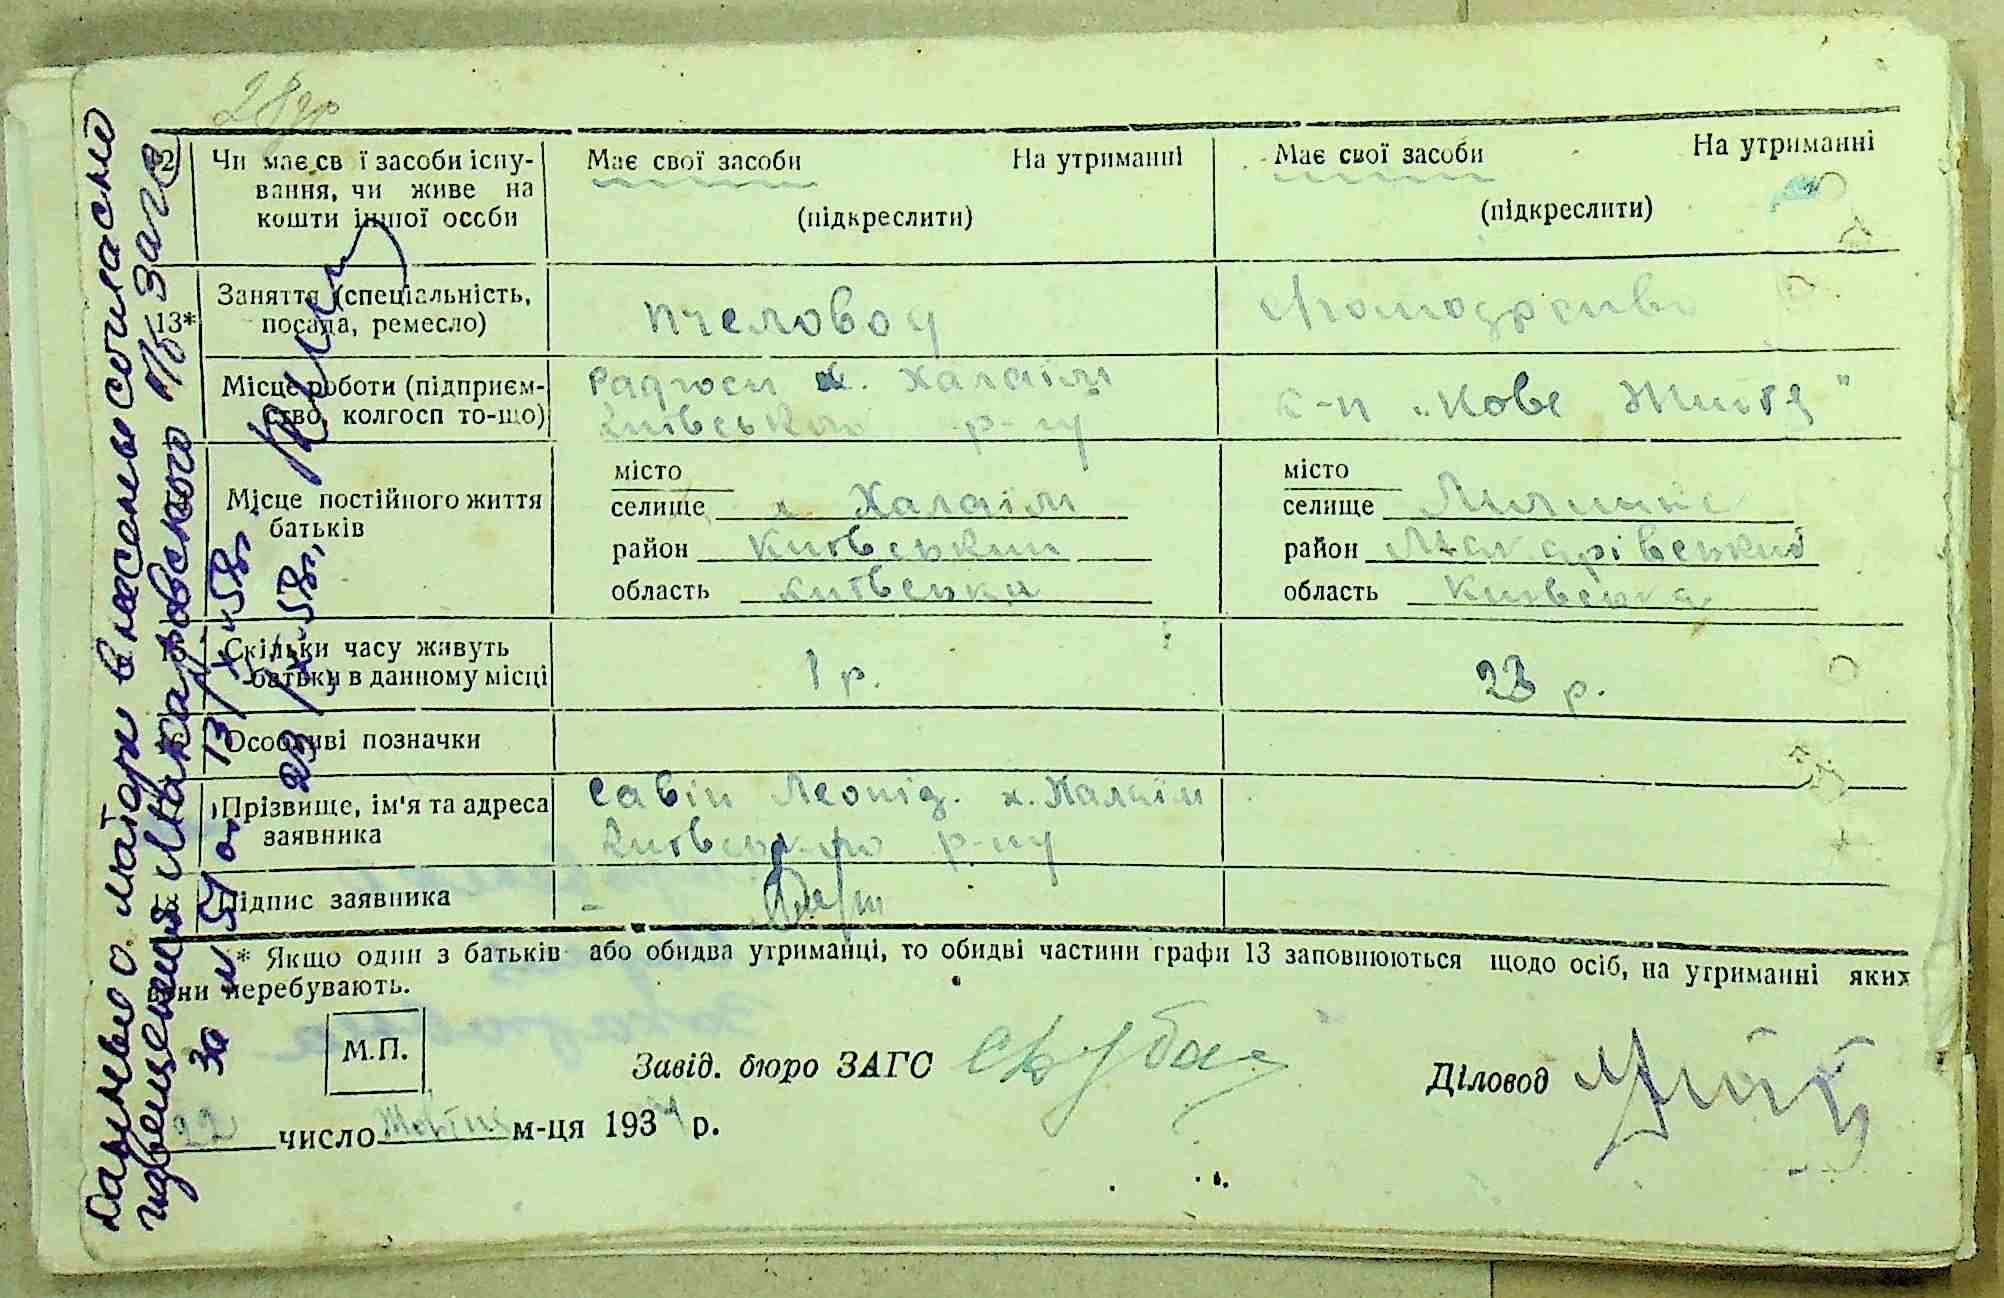 28
Чи має св ї засоби існу-
вання, чи живе на
кошти іншої особи
Має свої засоби На утриманні
(підкреслити)
Має свої засоби На утриманні
(підкреслити)
13*
Заняття (спеціальність,
посада, ремесло)
пчеловод
Місце роботи (підприєм-
ство, колгосп то-що)
Радгосп х. Халаїм
Київського р-ну
к-п „Нове Життя"
Місце постійного життя
батьків
місто
селище х. Халаїм
район Київський
область Київська
місто
селище
район Макарівський
область Київська
Скільки часу живуть
батьки в данному місці
1 р.
23 р.
Особливі позначки
Прізвище, ім'я та адреса
заявника
Савін Леонід. х. Халаїм
Київського р-ну
Підпис заявника
* Якщо один з батьків або обидва утриманці, то обидві частини графи 13 заповнюються щодо осіб, на утриманні яких
вони перебувають.
М.П.
Завід. бюро ЗАГС
Діловод
22 число м-ця 193 р.
Данные о матери внесены согласно
извещения Макаровского р/б Загс
за № 54 от 13/X-58г.
23/X-58г.